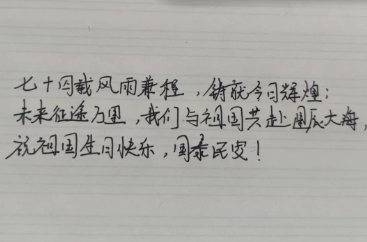 七十四载风雨兼程，铸就今日辉煌；
未来征途万里，我们与祖国共赴星辰大海，
祝祖国生日快乐，国泰民安！